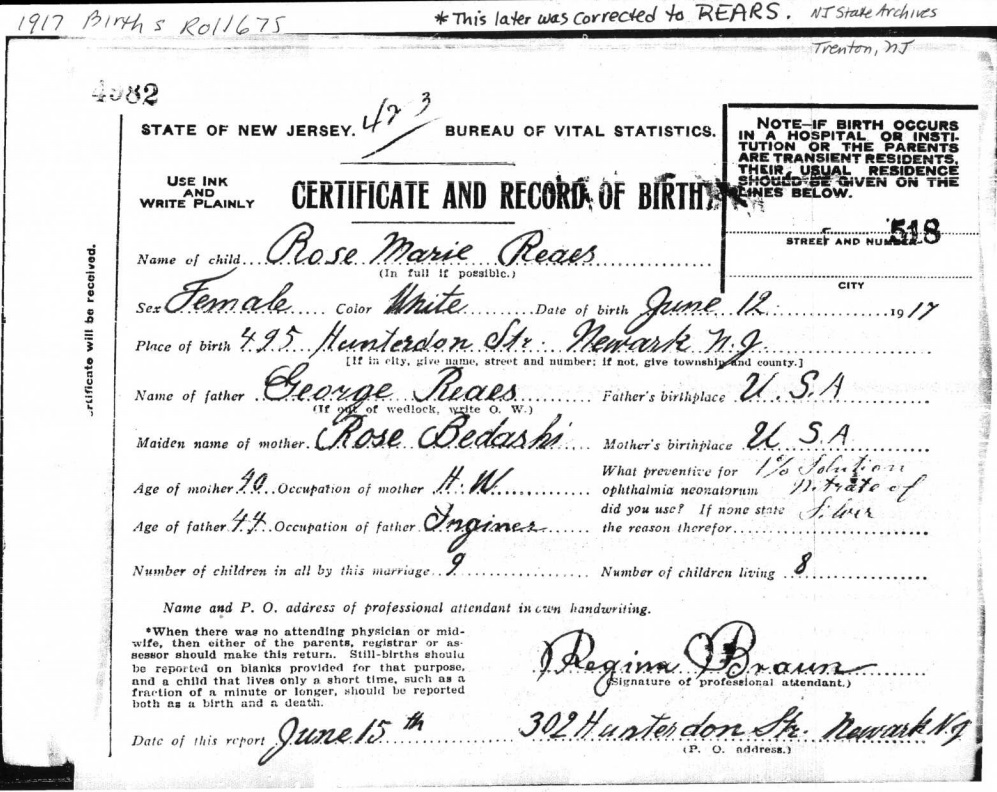 1917 Births Roll 675 *This later was corrected to REARS. NJ State Archives
Trenton, NJ
4982
423
STATE OF NEW JERSEY. BUREAU OF VITAL STATISTICS.
USE INK
AND
WRITE PLAINLY
CERTIFICATE AND RECORD OF BIRTH
NOTE—IF BIRTH OCCURS
IN A HOSPITAL OR INSTI-
TUTION OR THE PARENTS
ARE TRANSIENT RESIDENTS,
THEIR USUAL RESIDENCE
SHOULD BE GIVEN ON THE
LINES BELOW.
518
STREET AND NUMBER
CITY
rtificate will be received.
Name of child Rose Marie Reaes
(In full if possible.)
Sex Female Color White Date of birth June 12 1917
Place of birth 495 Hunterdon Str. Newark N.J.
[If in city, give name, street and number; if not, give township and county.]
Name of father George Reaes Father's birthplace U.S.A
(If out of wedlock, write O. W.)
Maiden name of mother Rose Bedashi Mother's birthplace U.S.A
Age of mother 40 Occupation of mother H.W
What preventive for 1% Solution
ophthalmia neonatorum Nitrate of
did you use? If none state Silver
the reason therefor
Age of father 44 Occupation of father Inginer
Number of children in all by this marriage 9 Number of children living 8
Name and P. O. address of professional attendant in own handwriting.
*When there was no attending physician or mid-
wife, then either of the parents, registrar or as-
sessor should make this return. Still-births should
be reported on blanks provided for that purpose,
and a child that lives only a short time, such as a
fraction of a minute or longer, should be reported
both as a birth and a death.
Regina Braun
(Signature of professional attendant.)
Date of this report June 15th 302 Hunterdon Str. Newark N.J
(P. O. address.)